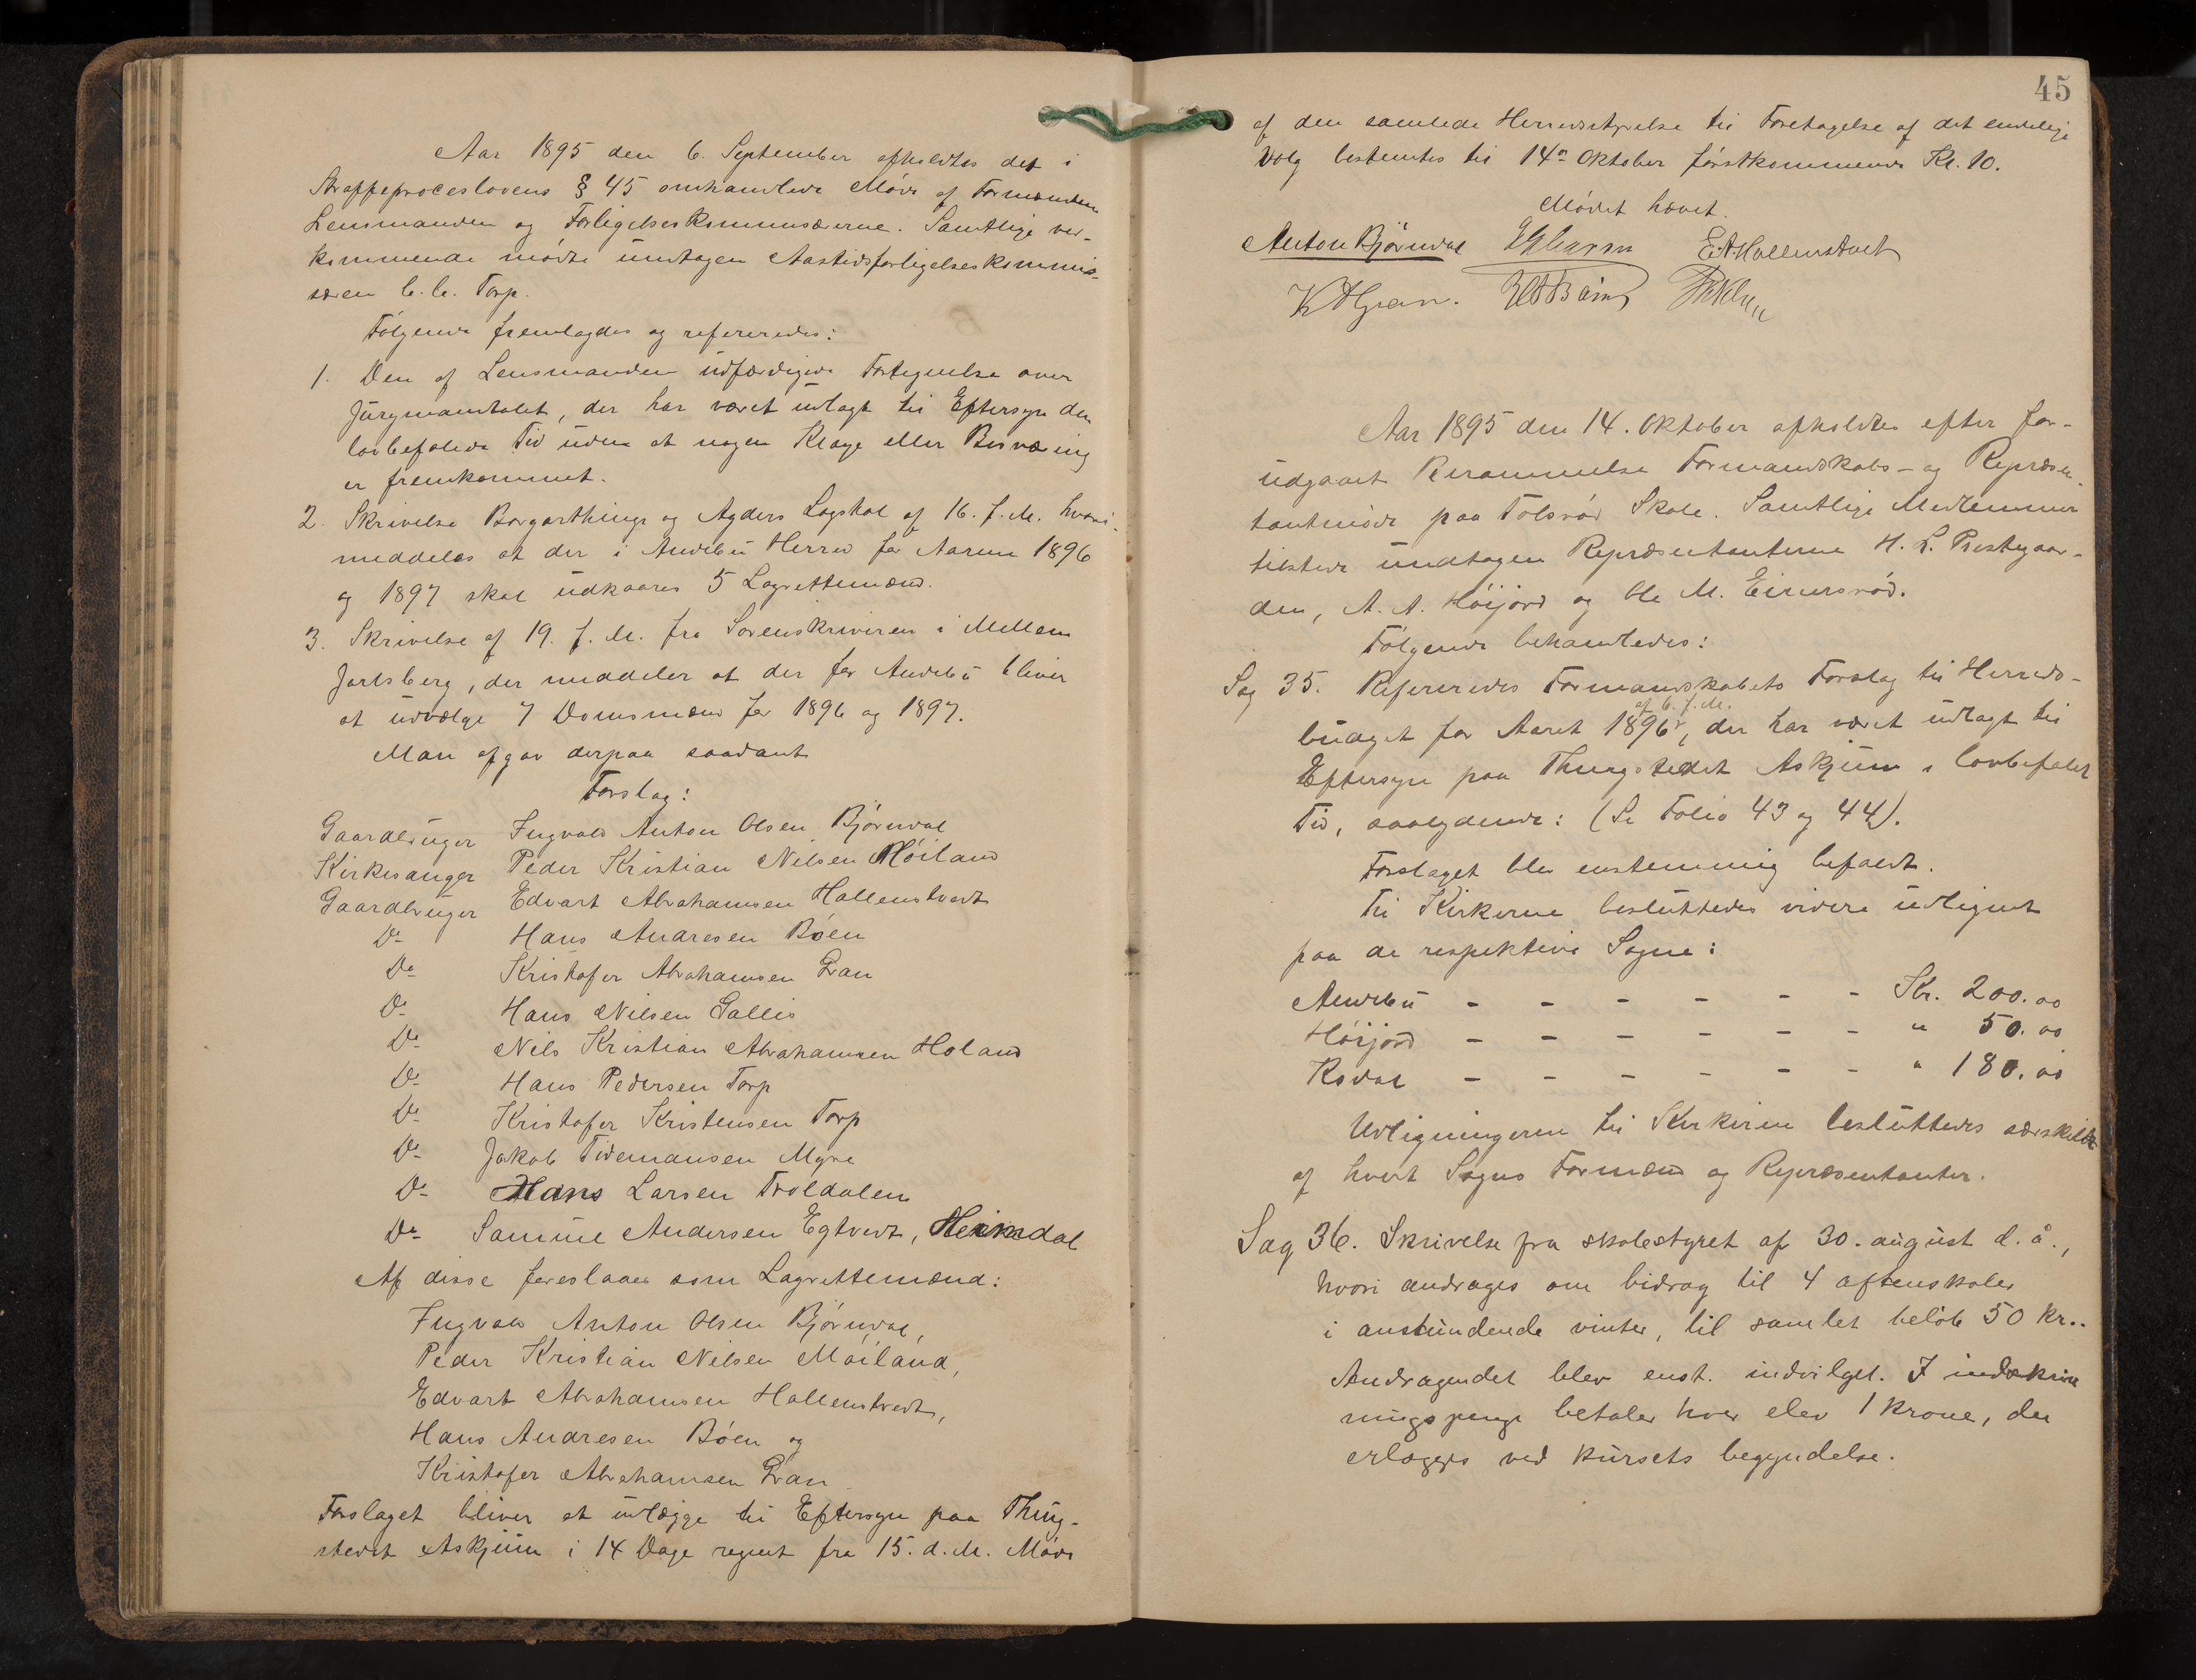 Aar 1895 den 6. September afholdtes det i
Straffeproceslovens § 45 omhandlede Møde af Formænden
Lensmanden og Forligelseskommissærerne. Samtlige ved-
kommende mødte undtagen Aastedsforligelseskommis-
særen C. C. Torp.
Følgende fremlagdes og refereredes:
1. Den af Lensmanden udfærdigede Fortegnelse over
Jurymandtalet, der har været udlagt til Eftersyn den
lovbefalede Tid uden at nogen Klage eller Besværing
er fremkommet.
2. Skrivelse Borgarthings og Agders Lagstol af 16. f. M. hvori
meddeles at der i Andebu Herred for Aarene 1896
og 1897 skal udkaares 5 Lagrettemænd.
3. Skrivelse af 19. f. M. fra Sorenskriveren i Mellem
Jarlsberg, der meddeler at der for Andebu bliver
at udvælge 7 Domsmænd for 1896 og 1897.
Man afgav derpaa saadant
Forslag:
Gaardbruger Ingvald Anton Olsen Bjørndal
Kirkesanger Peder Kristian Nilsen Møiland
Gaardbruger Edvart Abrahamsen Hallenstvedt
Do Hans Andresen Bøen
Do Kristofer Abrahamsen Gran
Do Hans Nilsen Gallis
Do Nils Kristian Abrahamsen Holand
Do Hans Pedersen Torp
Do Kristofer Kristensen Torp
Do Jakob Tidemansen Myre
Do Hans Larsen Troldalen
Do Samuel Andersen Egtvedt, Heimdal
Af disse foreslaaes som Lagrettemænd:
Ingvald Anton Olsen Bjørndal,
Peder Kristian Nilsen Møiland,
Edvart Abrahamsen Hallenstvedt,
Hans Andresen Bøen og
Kristofer Abrahamsen Gran
Forslaget bliver at udlægge til Eftersyn paa Thing-
stedet Askjum i 14 Dage regnet fra 15. d. M. Møde
45
af den samlede Herredsstyrelse til Foretagelse af det endelige
Valg bestemtes til 14de Oktober førstkommende Kl. 10.
Mødet hævet.
Anton Bjørndal E. A. Hallenstvedt
K A Gran. H A Bøen
Aar 1895 den 14. Oktober afholdtes efter for-
udgaaet Berammelse Formandskabs- og Repræsen-
tantmøde paa Tolsrød Skole. Samtlige Medlemmer
tilstede undtagen Repræsentanterne H. L. Prestegaar-
den, A. A. Høijord og Ole M. Einersrød.
Følgende behandledes:
Sag 35. Refereredes Formandskabets Forslag til Herreds-
af 6. f. M.
budget for Aaret 1896, der har været udlagt til
Eftersyn paa Thingstedet Askjum i lovbefalet
Tid, saalydende: (Se Folio 43 og 44).
Forslaget blev enstemmig befalet.
Til Kirkerne besluttedes videre udlignet
paa de respektive Sogne:
Andebu - - - - - - Kr. 200.00
Høijord - - - - - - " 50.00
Kodal - - - - - - " 180.00
Udligningen til Kirkerne besluttedes særskildt
af hvert Sogns Formænd og Repræsentanter.
Sag 36. Skrivelse fra skolestyret af 30. august d. å.,
hvori andrages om bidrag til 4 aftenskoler
i anstundende vinter, til samlet beløb 50 kr..
Andragendet blev enst. indvilget. I indskriv
ningspenge betaler hver elev 1 krone, der
erlægges ved kursets begyndelse.